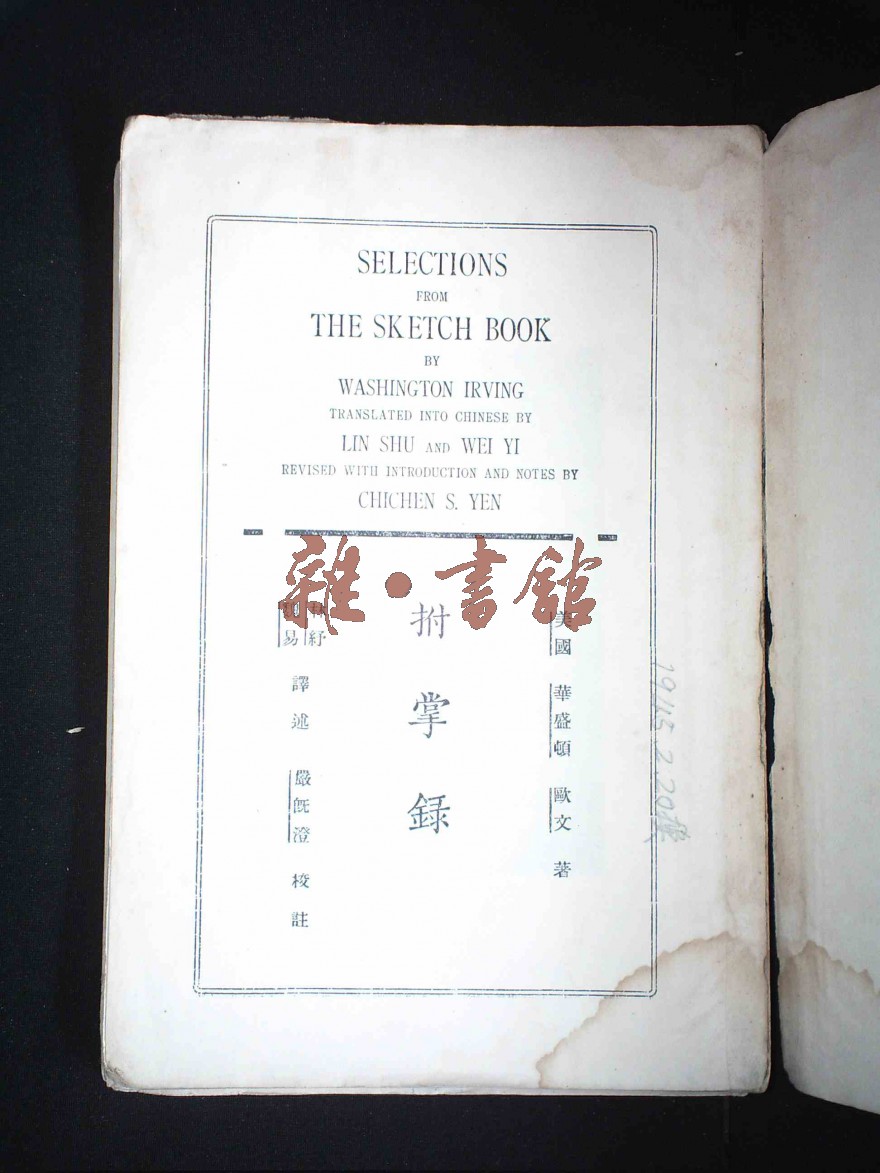 SELECTIONS
FROM
THE SKETCH BOOK
BY
WASHINGTON IRVING
TRANSLATED INTO CHINESE BY
LIN SHU AND WEI YI
REVISED WITH INTRODUCTION AND NOTES BY
CHICHEN S. YEN
雜·書館
美國 華盛頓 歐文 著
拊掌録
林紓
魏易
譯述
嚴既澄 校註
1945.2.20